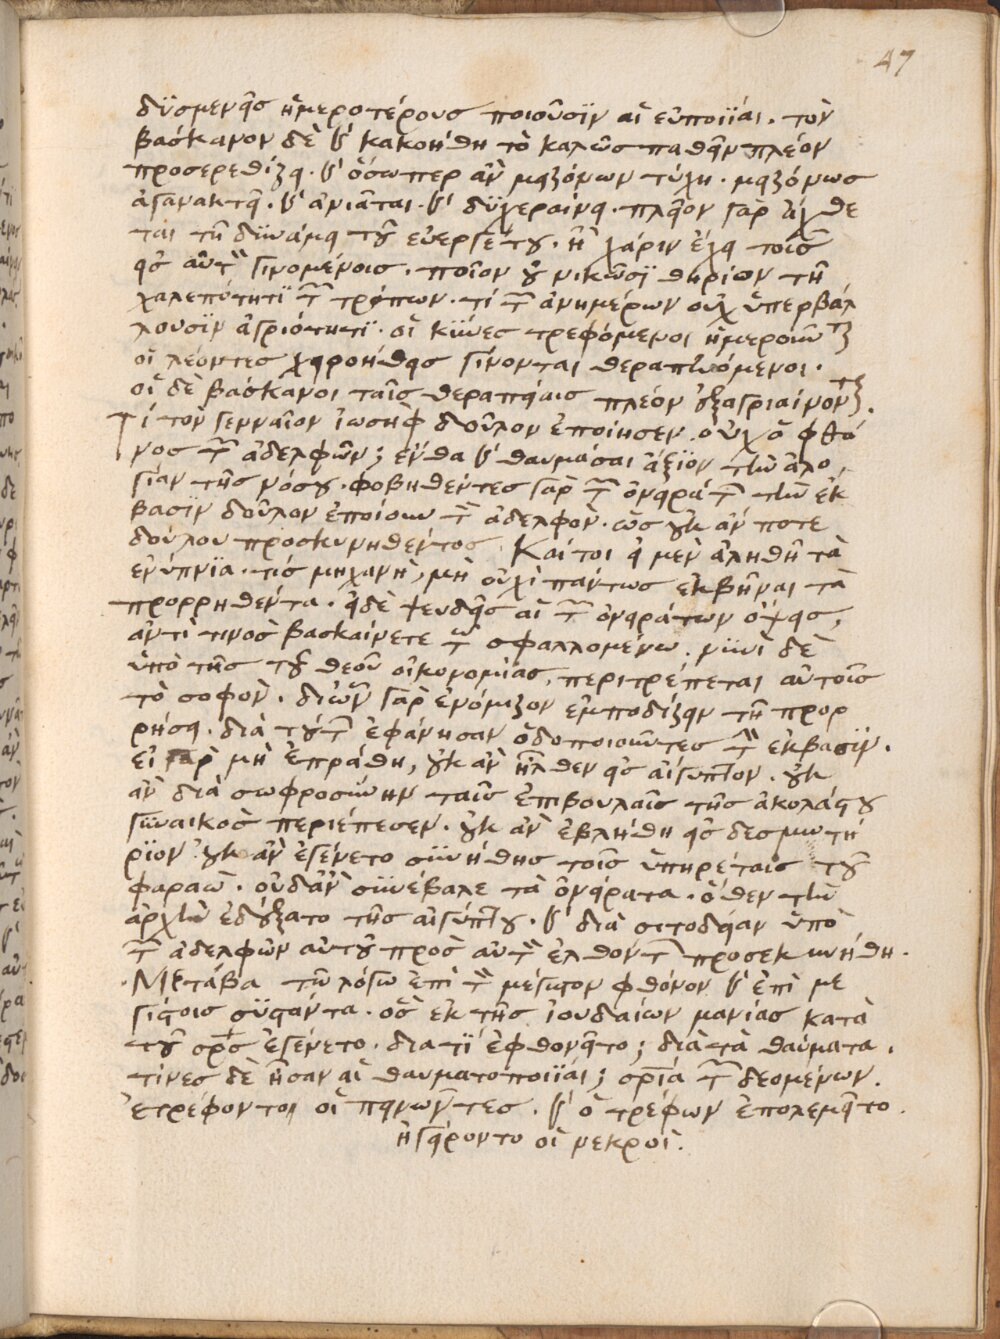 47
δϋσμενεῖς ἡμεροτέρους ποιοῦσϊν αἱ εὐποιΐαι. τὸν
βάσκανον δὲ καὶ κακοήθη τὸ καλῶς παθεῖν πλέον
προσερεθίζει. καὶ ὅσωπερ ἂν μειζόνων τύχη. μειζόνως
ἀγανακτεῖ. καὶ ἀνιᾶται. καὶ δϋχεραίνει. πλεῖον γὰρ ἄχθε
ται τῆ δϋνάμει τοῦ εὐεργέτου. ἢ χάριν ἔχει τοῖς
εἰς αὐτὸν γινομένοις. ποῖον οὐ νικῶσϊ θηρίον τῆ
χαλεπότητϊ τῶν τρόπων. τί τῶν ἀνημέρων οὐχ ὑπερβάλ
λουσϊν ἀγριότητϊ. οἱ κϋνες τρεφόμενοι ἡμεροῦνται
οἱ λέοντες χειροήθεις γίνονται θεραπευόμενοι.
οἱ δὲ βάσκανοι ταῖς θεραπείαις πλέον ἐξαγριαίνονται.
Τί τὸν γενναῖον ἰωσὴφ δοῦλον ἐποίησεν. οὐχ ὁ φθό
νος τῶν ἀδελφῶν; ἔνθα καὶ θαυμάσαι ἄξϊον τὴν ἀλο
γίαν τῆς νόσου. φοβηθέντες γὰρ τῶν ὀνειράτων τὴν ἔκ
βασϊν δοῦλον ἐποίουν τὸν ἀδελφὸν. ὡς οὐκ ἄν ποτε
δούλου προσκυνηθέντος. Καίτοι εἰ μὲν ἀληθῆ τὰ
ἐνύπνϊα. τίς μηχανὴ, μὴ οὐχὶ πάντως ἐκβῆναι τὰ
προρρηθέντα. εἰ δὲ ψευδεῖς αἱ τῶν ὀνειράτων ὄψεις,
ἀντὶ τινος βασκαίνετε τῶ σφαλλομένω. νϋνὶ δὲ
ὑπὸ τῆς τοῦ θεοῦ οἰκονομίας, περιτρέπεται αὐτοῖς
τὸ σοφὸν. δι ὧν γὰρ ἐνόμιζον ἐμποδίζειν τῆ προρ
ρήσει. διὰ τούτων ἐφάνησαν ὁδοποιοῦντες τὴν ἔκβασϊν.
εἰ γὰρ μὴ ἐπράθη, οὐκ ἂν ἦλθεν εἰς αἴγυπτον. οὐκ
ἂν διὰ σωφροσϋνην ταῖς ἐπιβουλαῖς τῆς ἀκολάστου
γϋναικὸς περιέπεσεν. οὐκ ἂν ἐβλήθη εἰς δεσμωτή
ρϊον. οὐκ ἂν ἐγένετο σϋνήθης τοῖς ὑπηρέταις τοῦ
φαραὼ. οὐδ ἂν σϋνέβαλε τὰ ὀνείρατα. ὅθεν τὴν
ἀρχὴν ἐδέξατο τῆς αἰγύπτου. καὶ διὰ σιτοδείαν ὑπὸ
τῶν ἀδελφῶν αὐτοῦ πρὸς αὐτὸν ἐλθόντων προσεκυνήθη.
Μετάβα τῶ λόγω ἐπὶ τὸν μέγιστον φθόνον καὶ ἐπὶ με
γίστοις σϋστάντα. ὃς ἐκ τῆς ἰουδαίων μανίας κατὰ
τοῦ σρς ἐγένετο. διατϊ ἐφθονεῖτο; διὰ τὰ θαύματα.
τίνες δὲ ἦσαν αἱ θαυματοποιΐαι; σρία τῶν δεομένων.
ἐτρέφοντο οἱ πεινῶντες. καὶ ὁ τρέφων ἐπολεμεῖτο.
ἠγείροντο οἱ νεκροὶ.